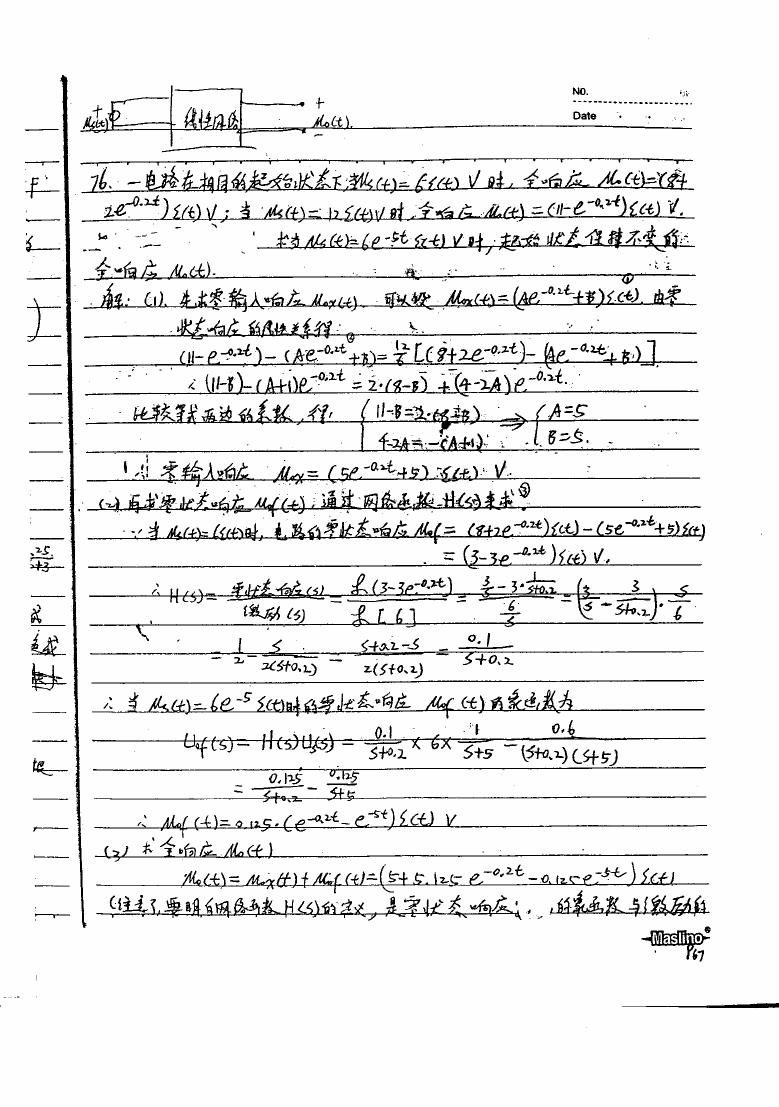 NO.
Date
+ u_s(t) - 线性网络 + u_o(t). -
76、一电路在相同的起始状态下,当u_s(t)=6ε(t) V 时, 全响应 u_o(t)=(8+
2e^{-0.2t})ε(t) V; 当 u_s(t)=12ε(t)V时,全响应 u_o(t)=(11-e^{-0.2t})ε(t) V.
求当u_s(t)=6e^{-5t}ε(t) V时,起始状态保持不变的
全响应 u_o(t).
解: (1). 先求零输入响应 u_ox(t). 可以设 u_ox(t)=(Ae^{-0.2t}+B)ε(t)①. 由零
状态响应的线性关系得:
(11-e^{-0.2t})-(Ae^{-0.2t}+B)=12/6[(8+2e^{-0.2t})-(Ae^{-0.2t}+B)]
∴(11-B)-(A+1)e^{-0.2t}=2·(8-B)+(4-2A)e^{-0.2t}.
比较等式两边的系数,得: { 11-B=2·(8-B) 4-2A=-(A+1) ⇒ { A=5 B=5.
∴ 零输入响应 u_ox=(5e^{-0.2t}+5)ε(t) V.
(2)再求零状态响应 u_of(t),通过网络函数 H(s)来求③
∵当 u_s(t)=6ε(t)时,电路的零状态响应 u_of=(8+2e^{-0.2t})ε(t)-(5e^{-0.2t}+5)ε(t)
=(3-3e^{-0.2t})ε(t) V.
∴ H(s)=零状态响应(s)/激励(s)=ℒ(3-3e^{-0.2t})/ℒ[6]=(3/s-3·1/(s+0.2))/(6/s)=(3/s-3/(s+0.2))·s/6
=1/2-s/(2(s+0.2))=(s+0.2-s)/(2(s+0.2))=0.1/(s+0.2)
∴当 u_s(t)=6e^{-5}ε(t)时的零状态响应 u_of(t)的象函数为
U_of(s)=H(s)U_s(s)=0.1/(s+0.2)×6×1/(s+5)=0.6/((s+0.2)(s+5))
=0.125/(s+0.2)-0.125/(s+5)
∴u_of(t)=0.125·(e^{-0.2t}-e^{-5t})ε(t) V
(3) 求全响应 u_o(t)
u_o(t)=u_ox(t)+u_of(t)=(5+5.125e^{-0.2t}-0.125e^{-5t})ε(t)
(注意了,要明白网络函数H(s)的定义,是零状态响应的象函数与激励的
Maslino
P67